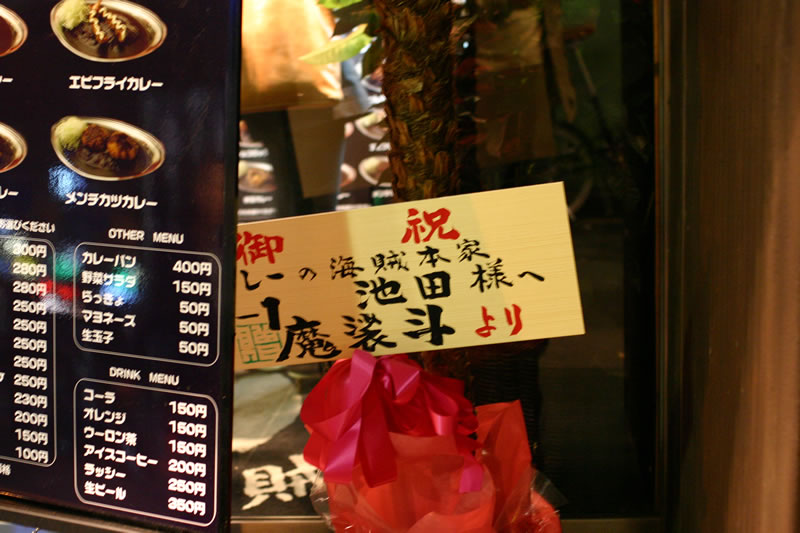 エビフライカレー
メンチカツカレー
お選びください
OTHER MENU
カレーパン 400円
野菜サラダ 150円
らっきょ 50円
マヨネーズ 50円
生玉子 50円
300円
280円
280円
250円
250円
250円
250円
250円
230円
200円
150円
100円
DRINK MENU
コーラ 150円
オレンジ 150円
ウーロン茶 150円
アイスコーヒー 200円
ラッシー 250円
生ビール 350円
御祝
レーの海賊本家
池田様へ
-1
贈
魔裟斗より
賊